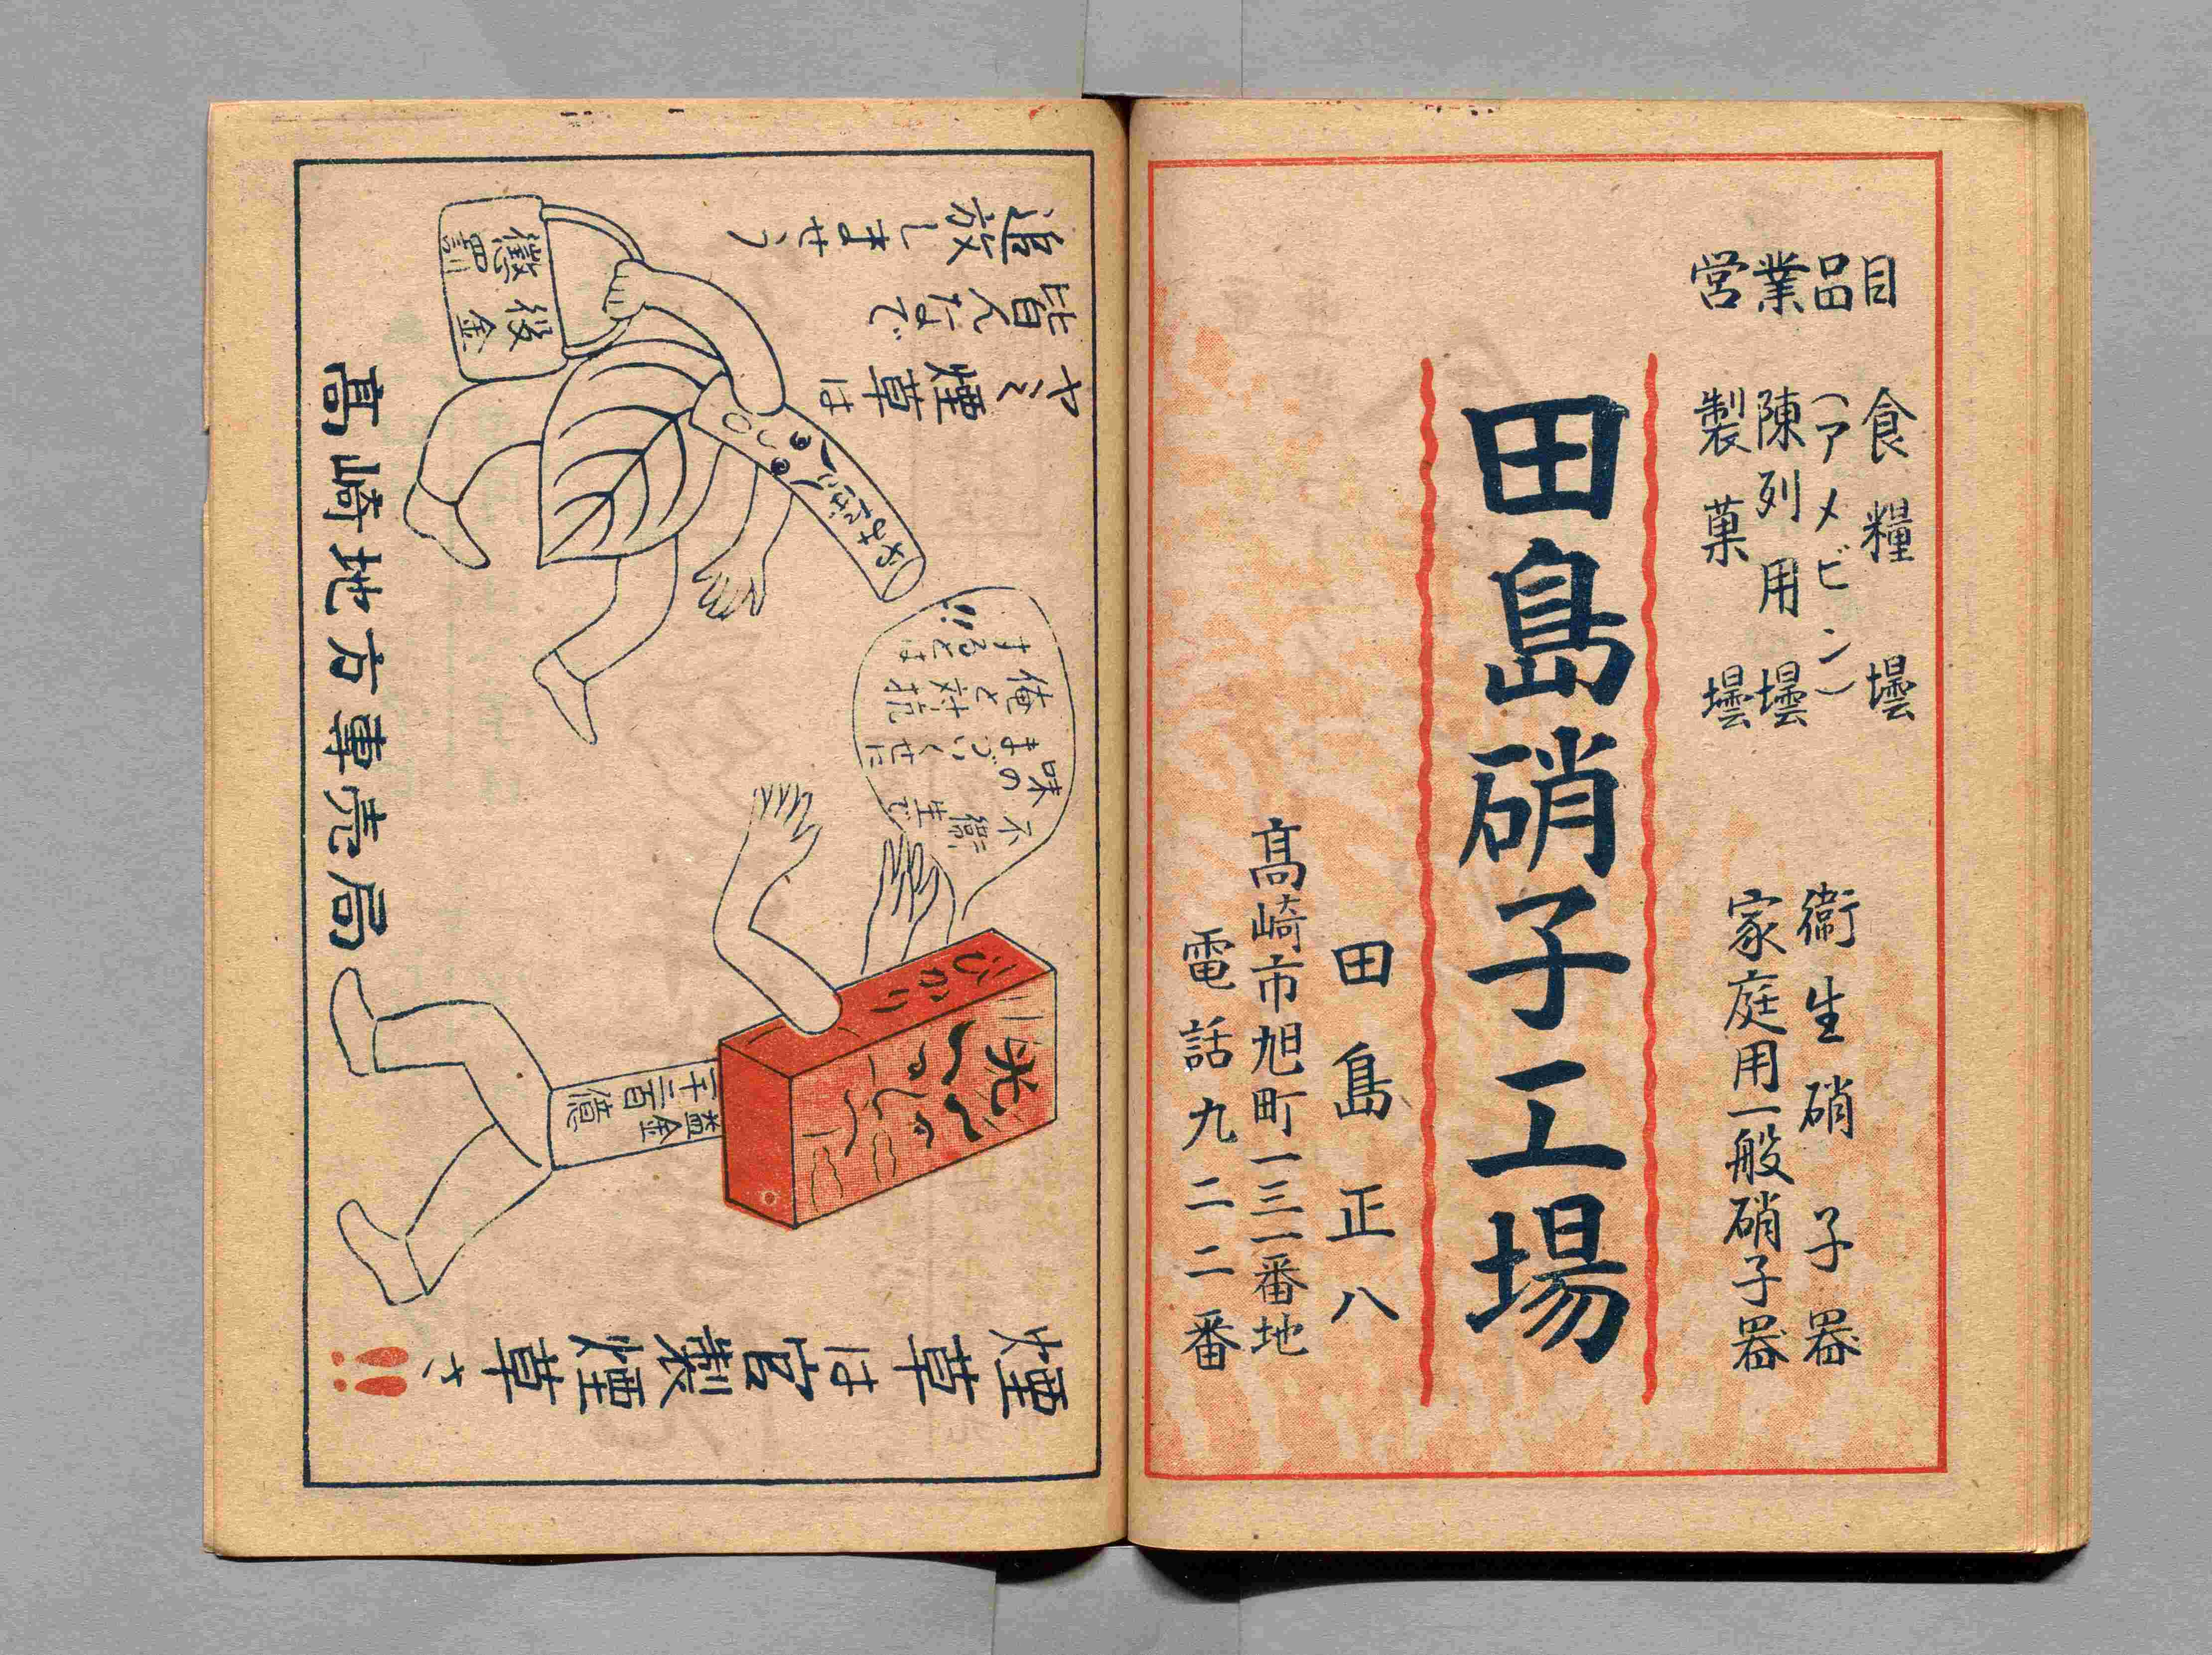 営業品目
食糧壜
(アメビン)
陳列用壜
製菓壜
衞生硝子器
家庭用一般硝子器
田島硝子工場
田島正八
高崎市旭町一三一番地
電話九二二番
煙草は官製煙草さ!!
不衛生で
味の
まづいくせに
俺と対抗
するとは!!
ひかり
光
益金
一千二百億
やみたばこ
懲役
罰金
ヤミ煙草は
皆んなで
追放しませう
高崎地方専売局